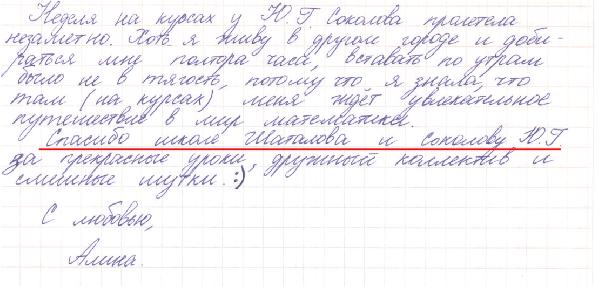 Неделя на курсах у Ю.Г. Соколова пролетела
незаметно. Хоть я живу в другом городе и доби-
раться мне полтора часа, вставать по утрам
было не в тягость, потому что я знала, что
там (на курсах) меня ждёт увлекательное
путешествие в мир математики.
Спасибо школе Шаталова и Соколову Ю.Г.
за прекрасные уроки, дружный коллектив и
смешные шутки. :)
С любовью,
Алина.